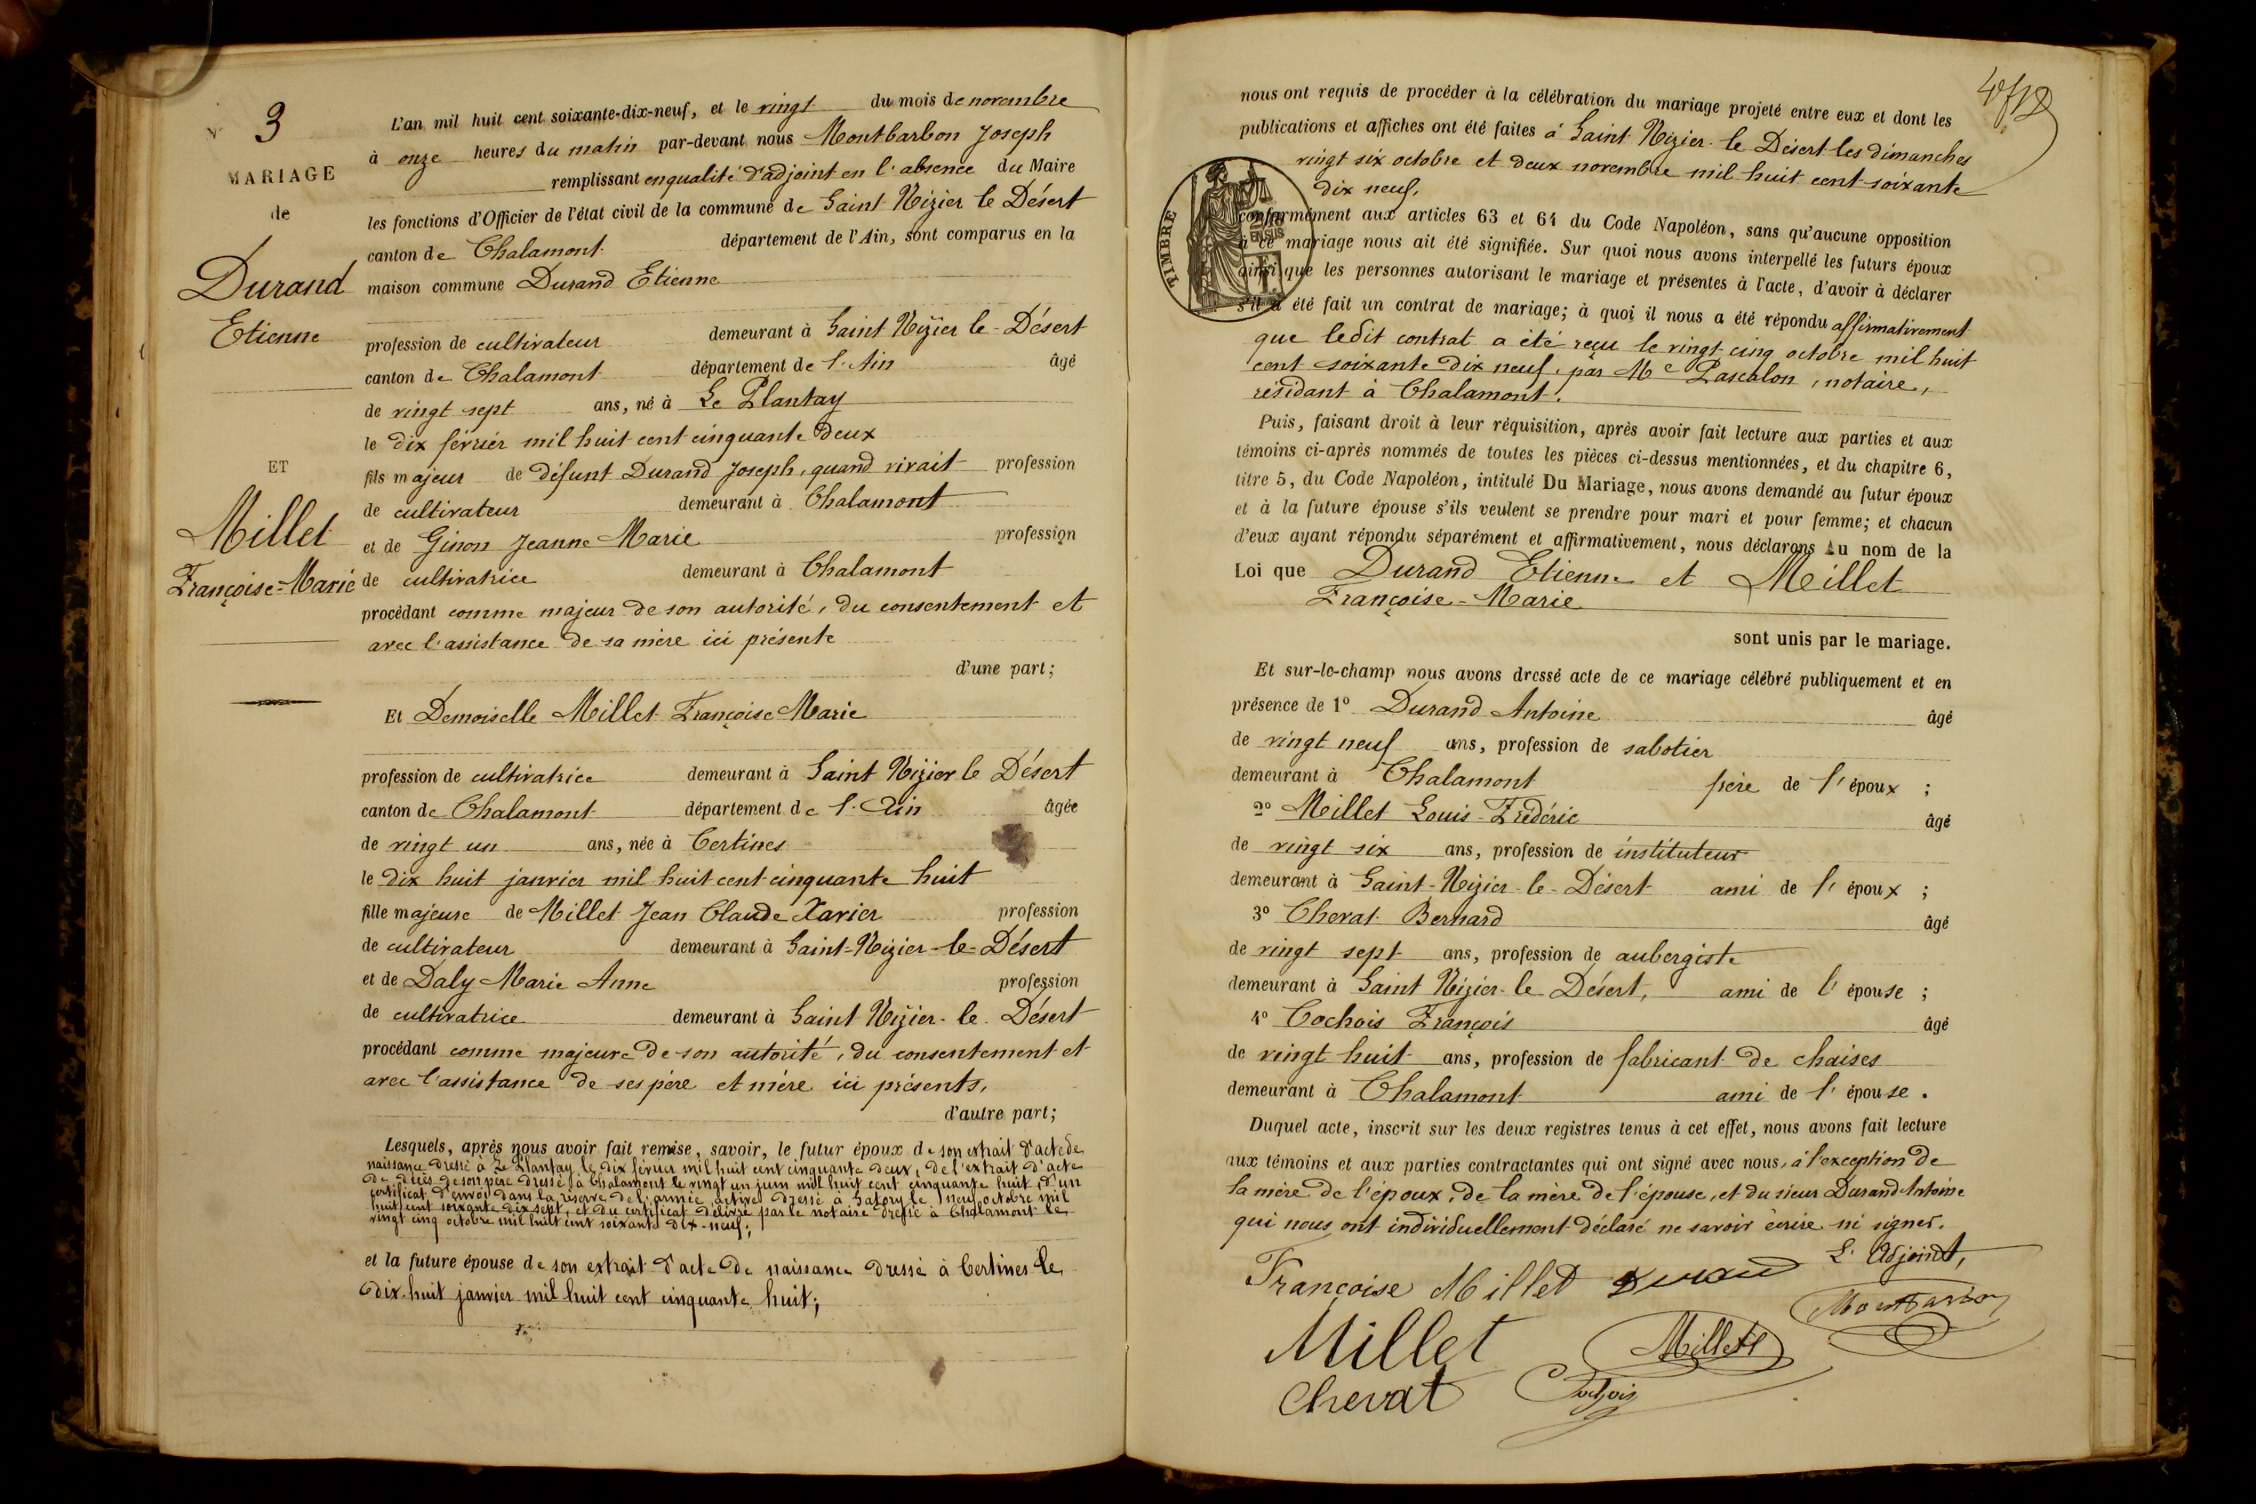 N° 3
MARIAGE
de
Durand
Etienne
ET
Millet
Françoise=Marie
L'an mil huit cent soixante-dix-neuf, et le vingt du mois de novembre
à onze heures du matin par-devant nous Montbarbon Joseph
remplissant en qualité d'adjoint en l'absence du Maire
les fonctions d'Officier de l'état civil de la commune de Saint Nizier le Désert
canton de Chalamont département de l'Ain, sont comparus en la
maison commune Durand Etienne
profession de cultivateur demeurant à Saint Nizier le-Désert
canton de Chalamont département de l'Ain âgé
de vingt sept ans, né à Le Plantay
le dix février mil huit cent cinquante deux
fils majeur de défunt Durand Joseph, quand vivait profession
de cultivateur demeurant à Chalamont
et de Ginon Jeanne Marie profession
de cultivatrice demeurant à Chalamont
procédant comme majeur de son autorité, du consentement et
avec l'assistance de sa mère ici présente
d'une part;
Et Demoiselle Millet Françoise Marie
profession de cultivatrice demeurant à Saint Nizier le Désert
canton de Chalamont département de l'Ain âgée
de vingt un ans, née à Certines
le dix huit janvier mil huit cent cinquante huit
fille majeure de Millet Jean Claude Xavier profession
de cultivateur demeurant à Saint-Nizier-le-Désert
et de Daly Marie Anne profession
de cultivatrice demeurant à Saint Nizier-le-Désert
procédant comme majeure de son autorité, du consentement et
avec l'assistance de ses père et mère ici présents,
d'autre part;
Lesquels, après nous avoir fait remise, savoir, le futur époux de son extrait d'acte de
naissance dressé à Le Plantay le dix février mil huit cent cinquante deux, de l'extrait d'acte
de décès de son père dressé à Chalamont le vingt un juin mil huit cent cinquante huit, d'un
certificat d'envoi dans la réserve de l'armée active dressé à Satory le neuf octobre mil
huit cent soixante dix sept, et du certificat délivré par le notaire dressé à Chalamont le
vingt cinq octobre mil huit cent soixante dix-neuf;
et la future épouse de son extrait d'acte de naissance dressé à Certines le
dix-huit janvier mil huit cent cinquante huit;
nous ont requis de procéder à la célébration du mariage projeté entre eux et dont les
publications et affiches ont été faites à Saint Nizier-le Désert les dimanches
vingt six octobre et deux novembre mil huit cent soixante
dix neuf,
TIMBRE
conformément aux articles 63 et 64 du Code Napoléon, sans qu'aucune opposition
à ce mariage nous ait été signifiée. Sur quoi nous avons interpellé les futurs époux
ainsi que les personnes autorisant le mariage et présentes à l'acte, d'avoir à déclarer
s'il a été fait un contrat de mariage; à quoi il nous a été répondu affirmativement
que ledit contrat a été reçu le vingt cinq octobre mil huit
cent soixante dix neuf, par Me Pascalon, notaire,
résidant à Chalamont.
Puis, faisant droit à leur réquisition, après avoir fait lecture aux parties et aux
témoins ci-après nommés de toutes les pièces ci-dessus mentionnées, et du chapitre 6,
titre 5, du Code Napoléon, intitulé Du Mariage, nous avons demandé au futur époux
et à la future épouse s'ils veulent se prendre pour mari et pour femme; et chacun
d'eux ayant répondu séparément et affirmativement, nous déclarons Au nom de la
Loi que Durand Etienne et Millet
Françoise-Marie
sont unis par le mariage.
Et sur-le-champ nous avons dressé acte de ce mariage célébré publiquement et en
présence de 1° Durand Antoine âgé
de vingt neuf ans, profession de sabotier
demeurant à Chalamont père de l'époux;
2° Millet Louis-Frédéric âgé
de vingt six ans, profession de instituteur
demeurant à Saint-Nizier-le-Désert ami de l'époux;
3° Chevat Bernard âgé
de vingt sept ans, profession de aubergiste
demeurant à Saint Nizier-le Désert, ami de l'épouse;
4° Cochois François âgé
de vingt huit ans, profession de fabricant de chaises
demeurant à Chalamont ami de l'épouse.
Duquel acte, inscrit sur les deux registres tenus à cet effet, nous avons fait lecture
aux témoins et aux parties contractantes qui ont signé avec nous, à l'exception de
la mère de l'époux, de la mère de l'épouse, et du sieur Durand Antoine
qui nous ont individuellement déclaré ne savoir écrire ni signer.
L'Adjoint,
Françoise Millet Durand
Montbarbon
Millet Millet
Chevat Cochois